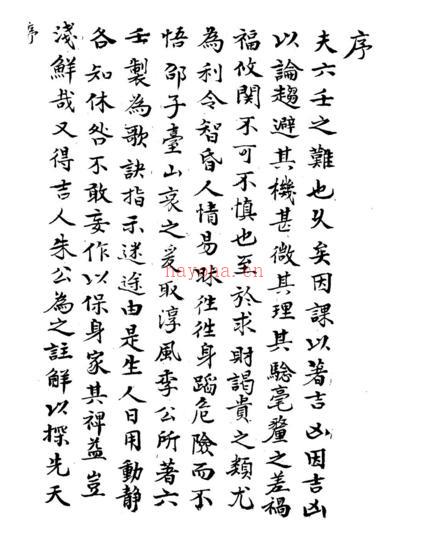 序
夫六壬之難也久矣因課以著吉凶因吉凶
以論趨避其機甚微其理其驗毫釐之差禍
福攸關不可不慎也至於求財謁貴之類尤
為利令智昏人情易昧徃徃身蹈危險而不
悟邵子臺山哀之爰取淳風李公所著六
壬製為歌訣指示迷途由是生人日用動靜
各知休咎不敢妄作以保身家其裨益豈
淺鮮哉又得吉人朱公為之註解以探先天
序
nayona.cn